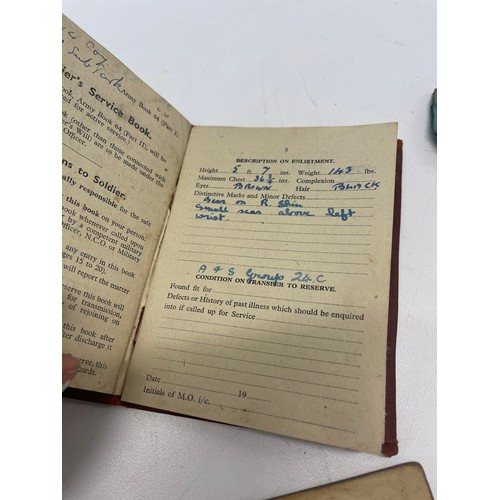 Army Book 64 (Part I).
Soldier's Service Book.
Army Book 64 (Part II) will be
for active service.)
book (other than those connected with
Soldier's Will) are to be made under the
Officer.
to Soldier.
personally responsible for the safe
this book on your person.
whenever called upon
competent military
Officer, N.C.O. or Military
any entry in this book
pages 15 to 20).
will report the matter
this book will
for transmission,
of rejoining on
this book after
after discharge if
serve, this
3
DESCRIPTION ON ENLISTMENT.
Height 5 ft. 7 ins. Weight 143 lbs.
Maximum Chest 36½ ins. Complexion
Eyes BROWN Hair BLACK
Distinctive Marks and Minor Defects
Scar on R Shin
Small scar above left
wrist.
A & S Group 24.C
CONDITION ON TRANSFER TO RESERVE.
Found fit for
Defects or History of past illness which should be enquired
into if called up for Service
Date 19
Initials of M.O. i/c.